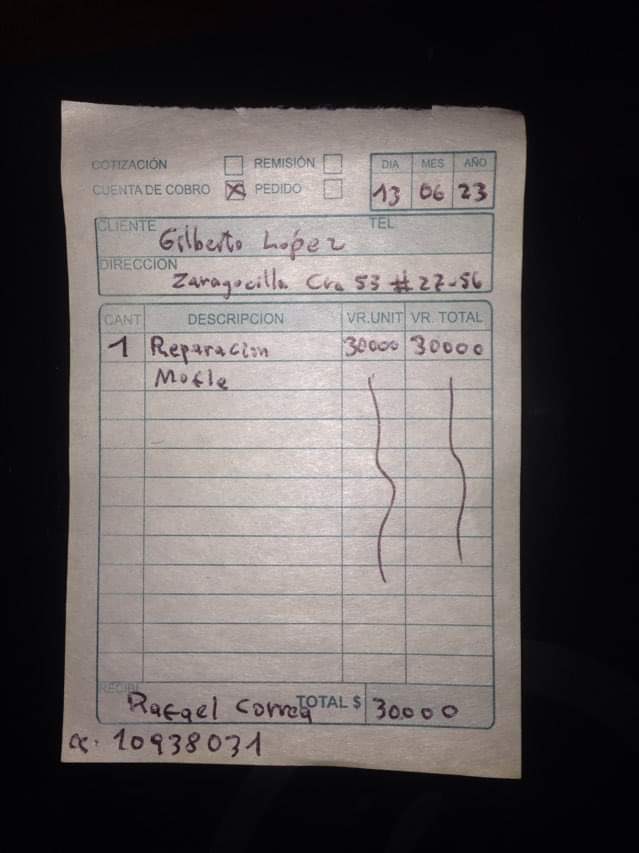 COTIZACIÓN REMISIÓN DIA MES AÑO
CUENTA DE COBRO X PEDIDO 13 06 23
CLIENTE Gilberto López TEL
DIRECCIÓN Zaragocilla Cra 53 # 27-56
CANT DESCRIPCIÓN VR.UNIT VR. TOTAL
1 Reparación 30000 30000
Mofle
RECIBÍ Rafael Correa TOTAL $ 30000
cc. 10938031